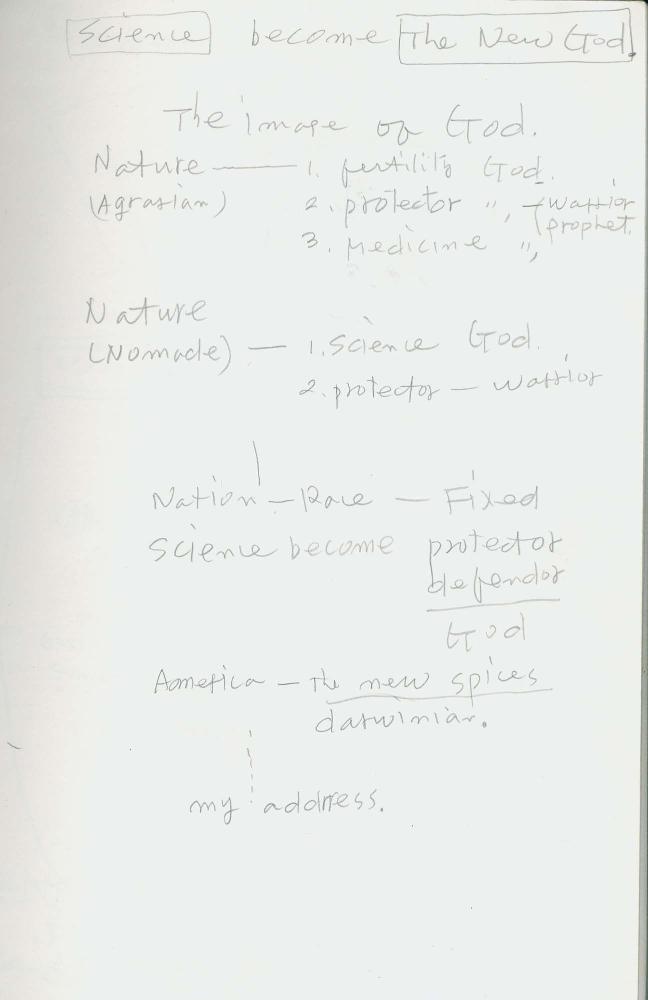 Science become The New God.
The image of God.
Nature — 1. fertility God.
(Agrasian) 2. protector ", — warrior
prophet.
3. Medicine ",
Nature
(Nomade) — 1. Science God.
2. protector — warrior
Nation — Race — Fixed
Science become protector
defendor
God
Ametica — The new spices
darwinian.
my address.